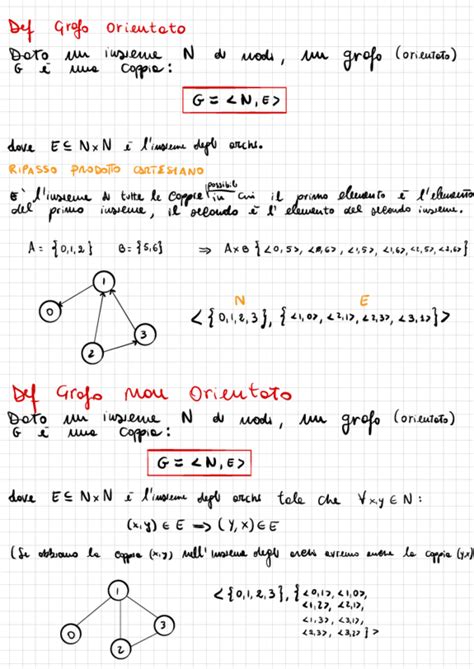 Def Grafo Orientato
Dato un insieme N di nodi, un grafo (orientato)
G è una coppia:
G = <N, E>
dove E ⊆ N×N è l'insieme degli archi.
RIPASSO PRODOTTO CARTESIANO
E' l'insieme di tutte le coppie possibili in cui il primo elemento è l'elemento
del primo insieme, il secondo è l'elemento del secondo insieme.
A = {0,1,2} B = {5,6} ⇒ A×B {<0,5>, <0,6>, <1,5>, <1,6>, <2,5>, <2,6>}
N E
<{0,1,2,3}, {<1,0>, <2,1>, <2,3>, <3,1>}>
1
0
3
2
Def Grafo non Orientato
Dato un insieme N di nodi, un grafo (orientato)
G è una coppia:
G = <N, E>
dove E ⊆ N×N è l'insieme degli archi tale che ∀x,y ∈ N:
(x,y) ∈ E → (y,x) ∈ E
(Se abbiamo la coppia (x,y) nell'insieme degli archi avremo anche la coppia (y,x))
<{0,1,2,3}, {<0,1>, <1,0>,
<1,2>, <2,1>,
<1,3>, <3,1>,
<2,3>, <3,2>}>
1
0
3
2